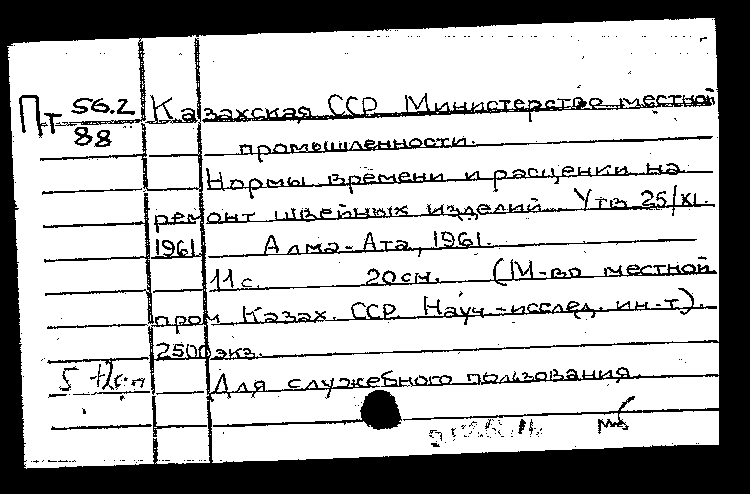 Пт 56.2/88 Казахская ССР Министерство местной
промышленности.
Нормы времени и расценки на
ремонт швейных изделий. Утв. 25/XI.
1961. Алма-Ата, 1961.
11 с. 20 см. (М-во местной
пром. Казах. ССР. Науч.-исслед. ин-т).
2500 экз.
Для служебного пользования.